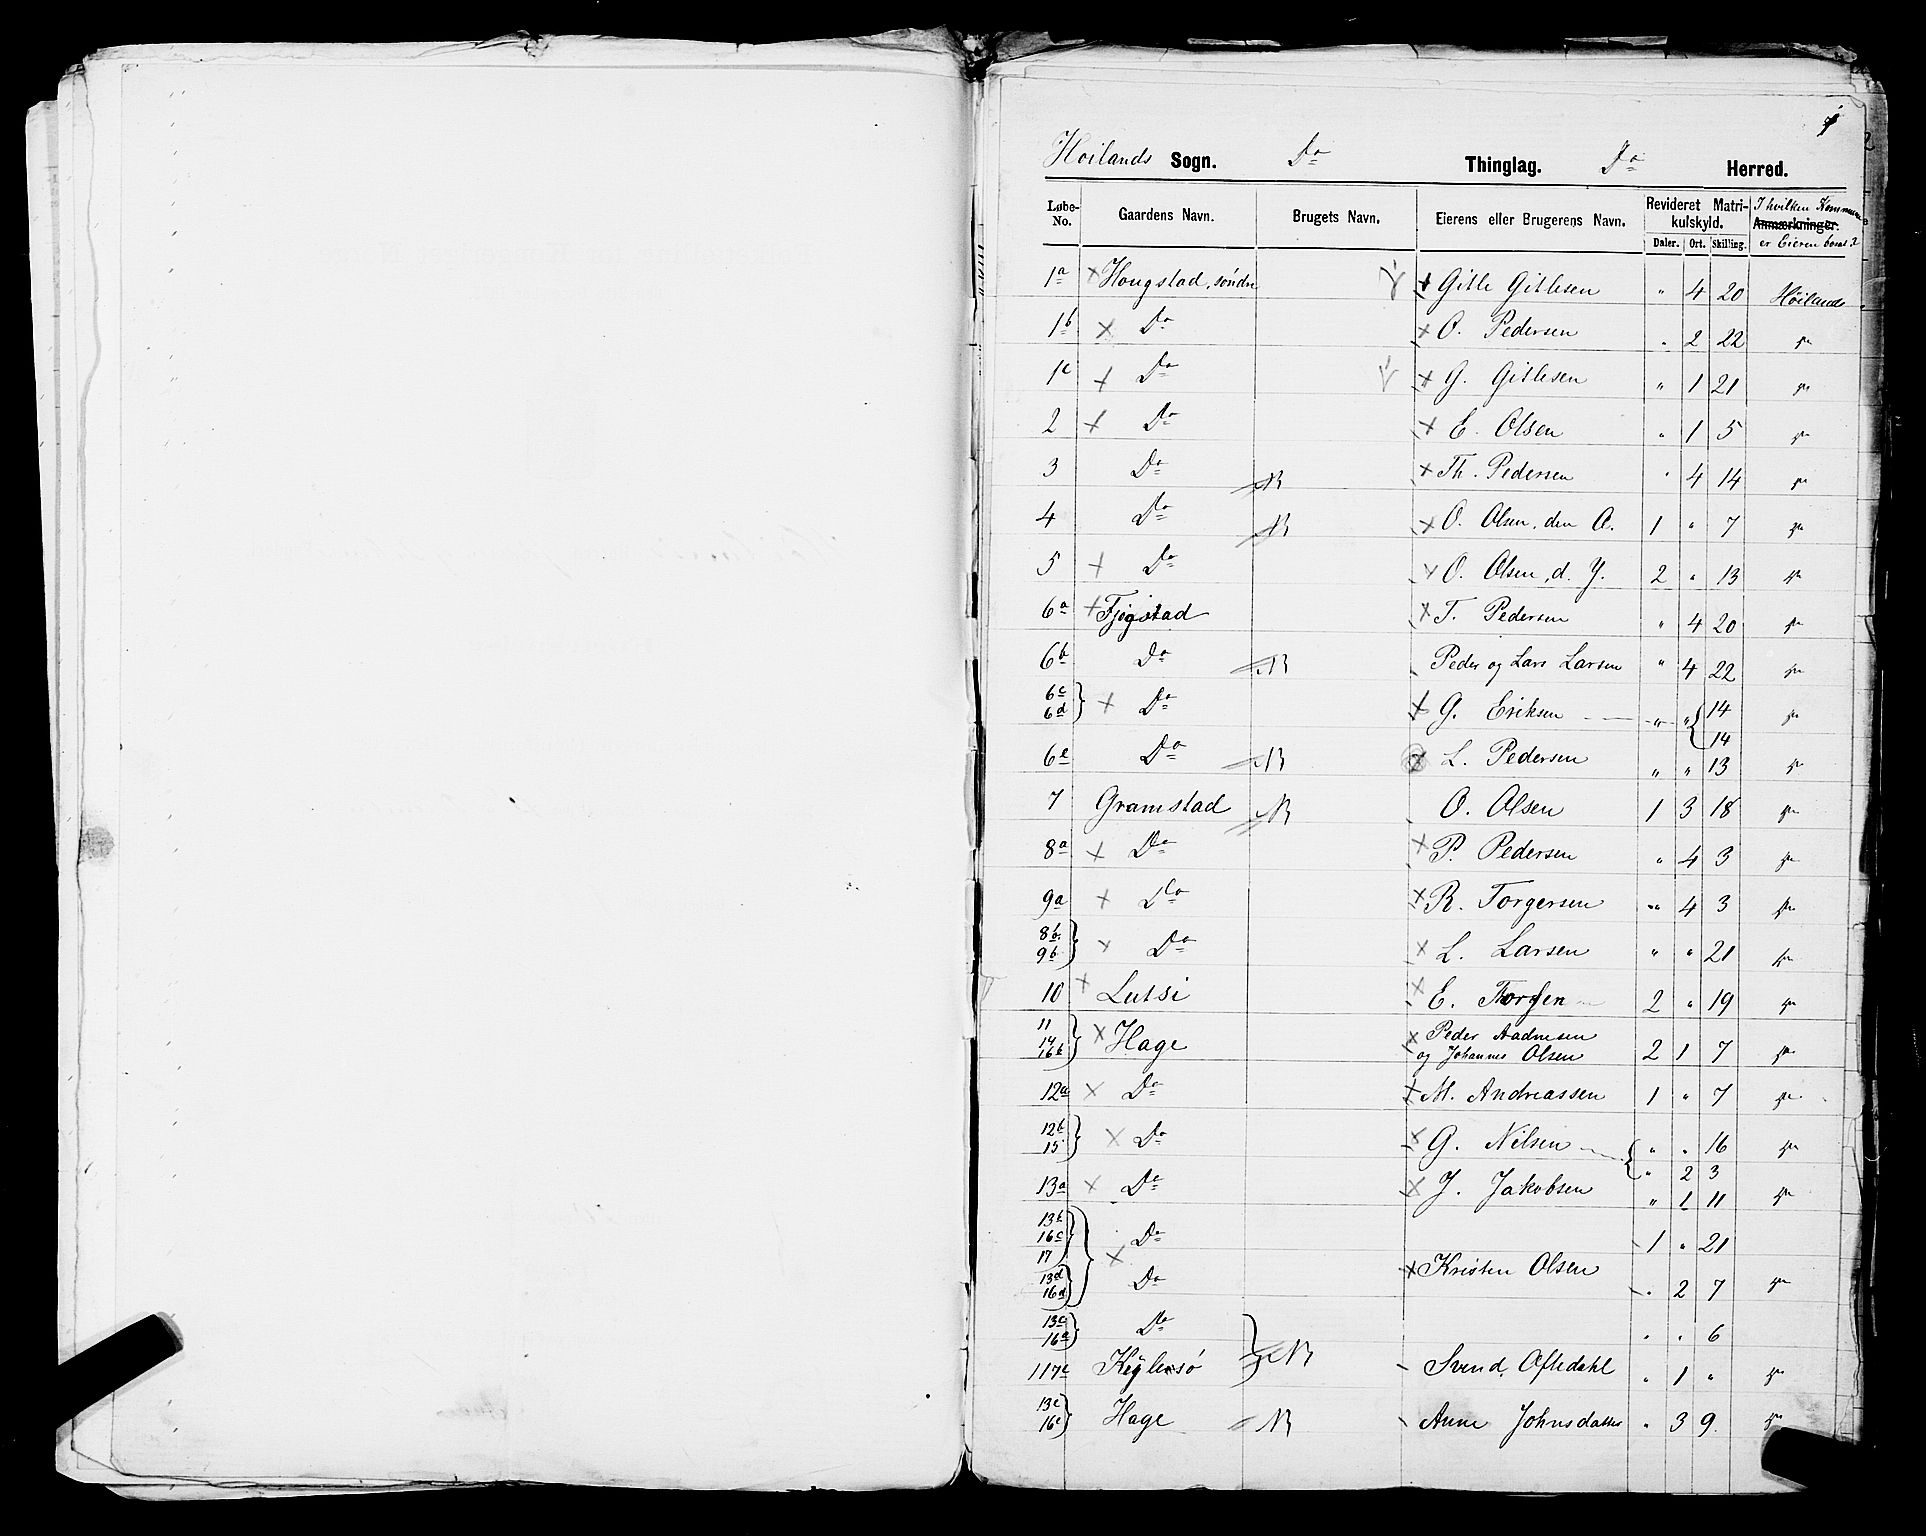 1
Höilands Sogn. Do Thinglag. Do Herred.
Løbe-No. Gaardens Navn. Brugets Navn. Eierens eller Brugerens Navn. Revideret Matrikulskyld. Daler. Ort. Skilling. Anmærkninger. I hvilken Kommune er Eieren bosat?
1a × Hougstad, søndre × Gitle Gitlesen " 4 20 Höiland
1b × Do × O. Pedersen " 2 22
1c × Do × G. Gitlesen " 1 21
2 × Do × E. Olsen " 1 5
3 Do × Th. Pedersen " 4 14
4 Do × O. Olsen, den A. 1 " 7
5 × Do × O. Olsen, d. Y. 2 " 13
6a × Fjogstad × T. Pedersen " 4 20
6b Do Peder og Lars Larsen " 4 22
6c 6d } × Do × G. Eriksen " " { 14
14
6e Do × L. Pedersen " " 13
7 Gramstad O. Olsen 1 3 18
8a × Do × P. Pedersen " 4 3
9a × Do × R. Torgersen " 4 3
8b 9b } × Do × L. Larsen " " 21
10 × Lutsi × E. 2 " 19
11 14 16b } × Hage × Peder Aadnesen
og Johannes Olsen 2 1 7
12a × Do × M. Andreassen 1 " 7
12b 15 } × Do × G. Nilsen { " " 16
" 2 3
13a × Do × J. Jakobsen " 1 11
13b 16c 17 } × Do 1 " 21
× Kristen Olsen
13d 16d } Do " 2 7
13c 16a } Do " " 6
117c Kyllesø Svend Oftedahl " 1 "
13e 16e } Hage Anne Johnsdatter " 3 9